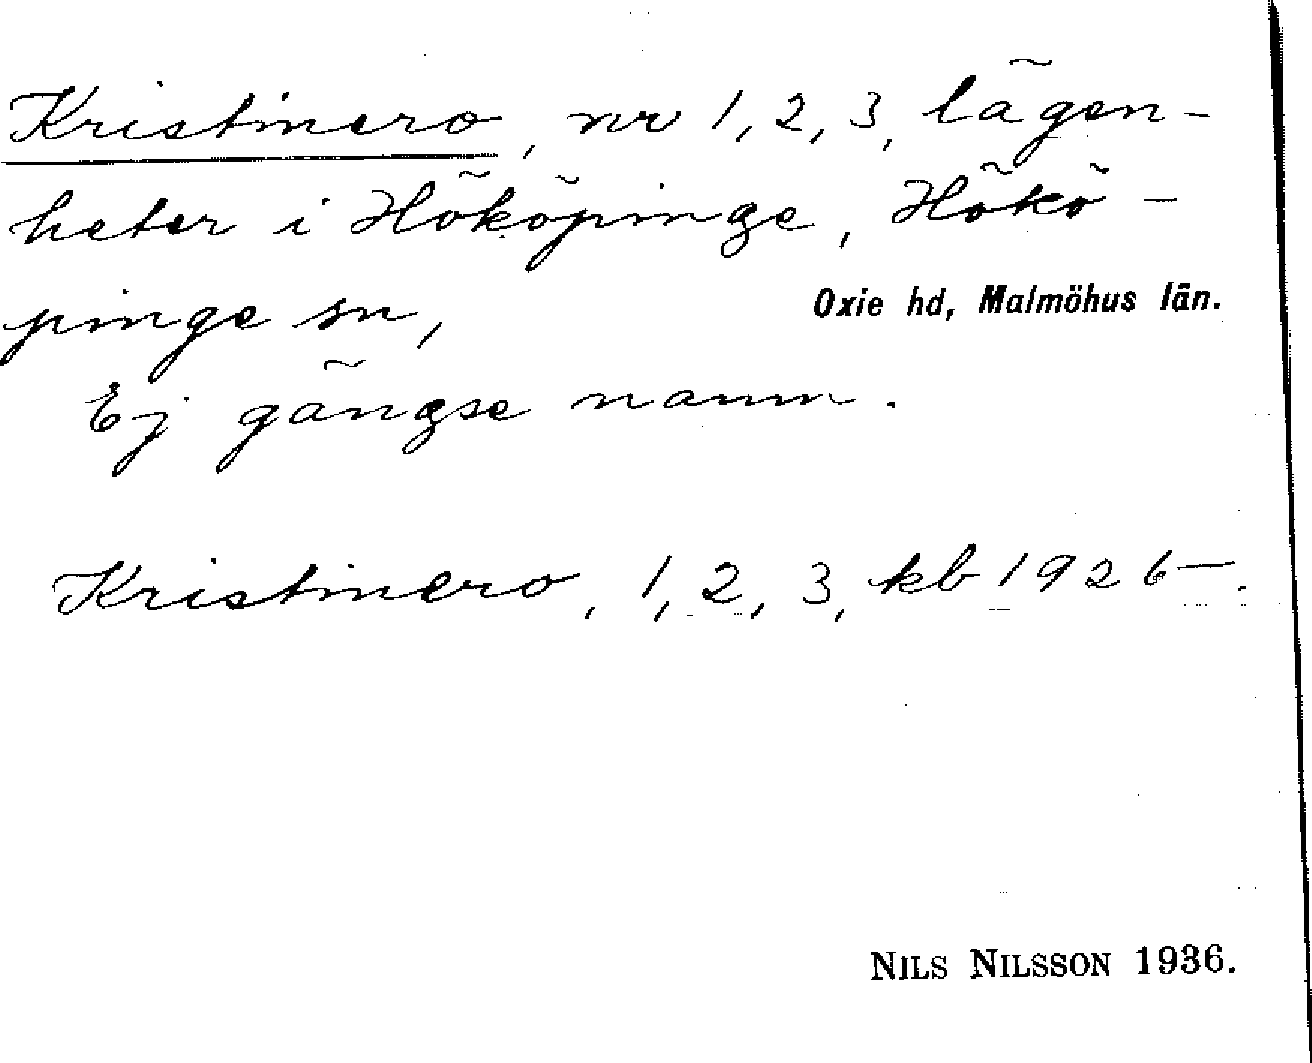 Kristinero, nr 1, 2, 3, lägen-
heter i Hököpinge, Hökö-
pinge sn,
Oxie hd, Malmöhus län.
Ej gängse namn.
Kristinero, 1, 2, 3, kb 1926-.
NILS NILSSON 1936.